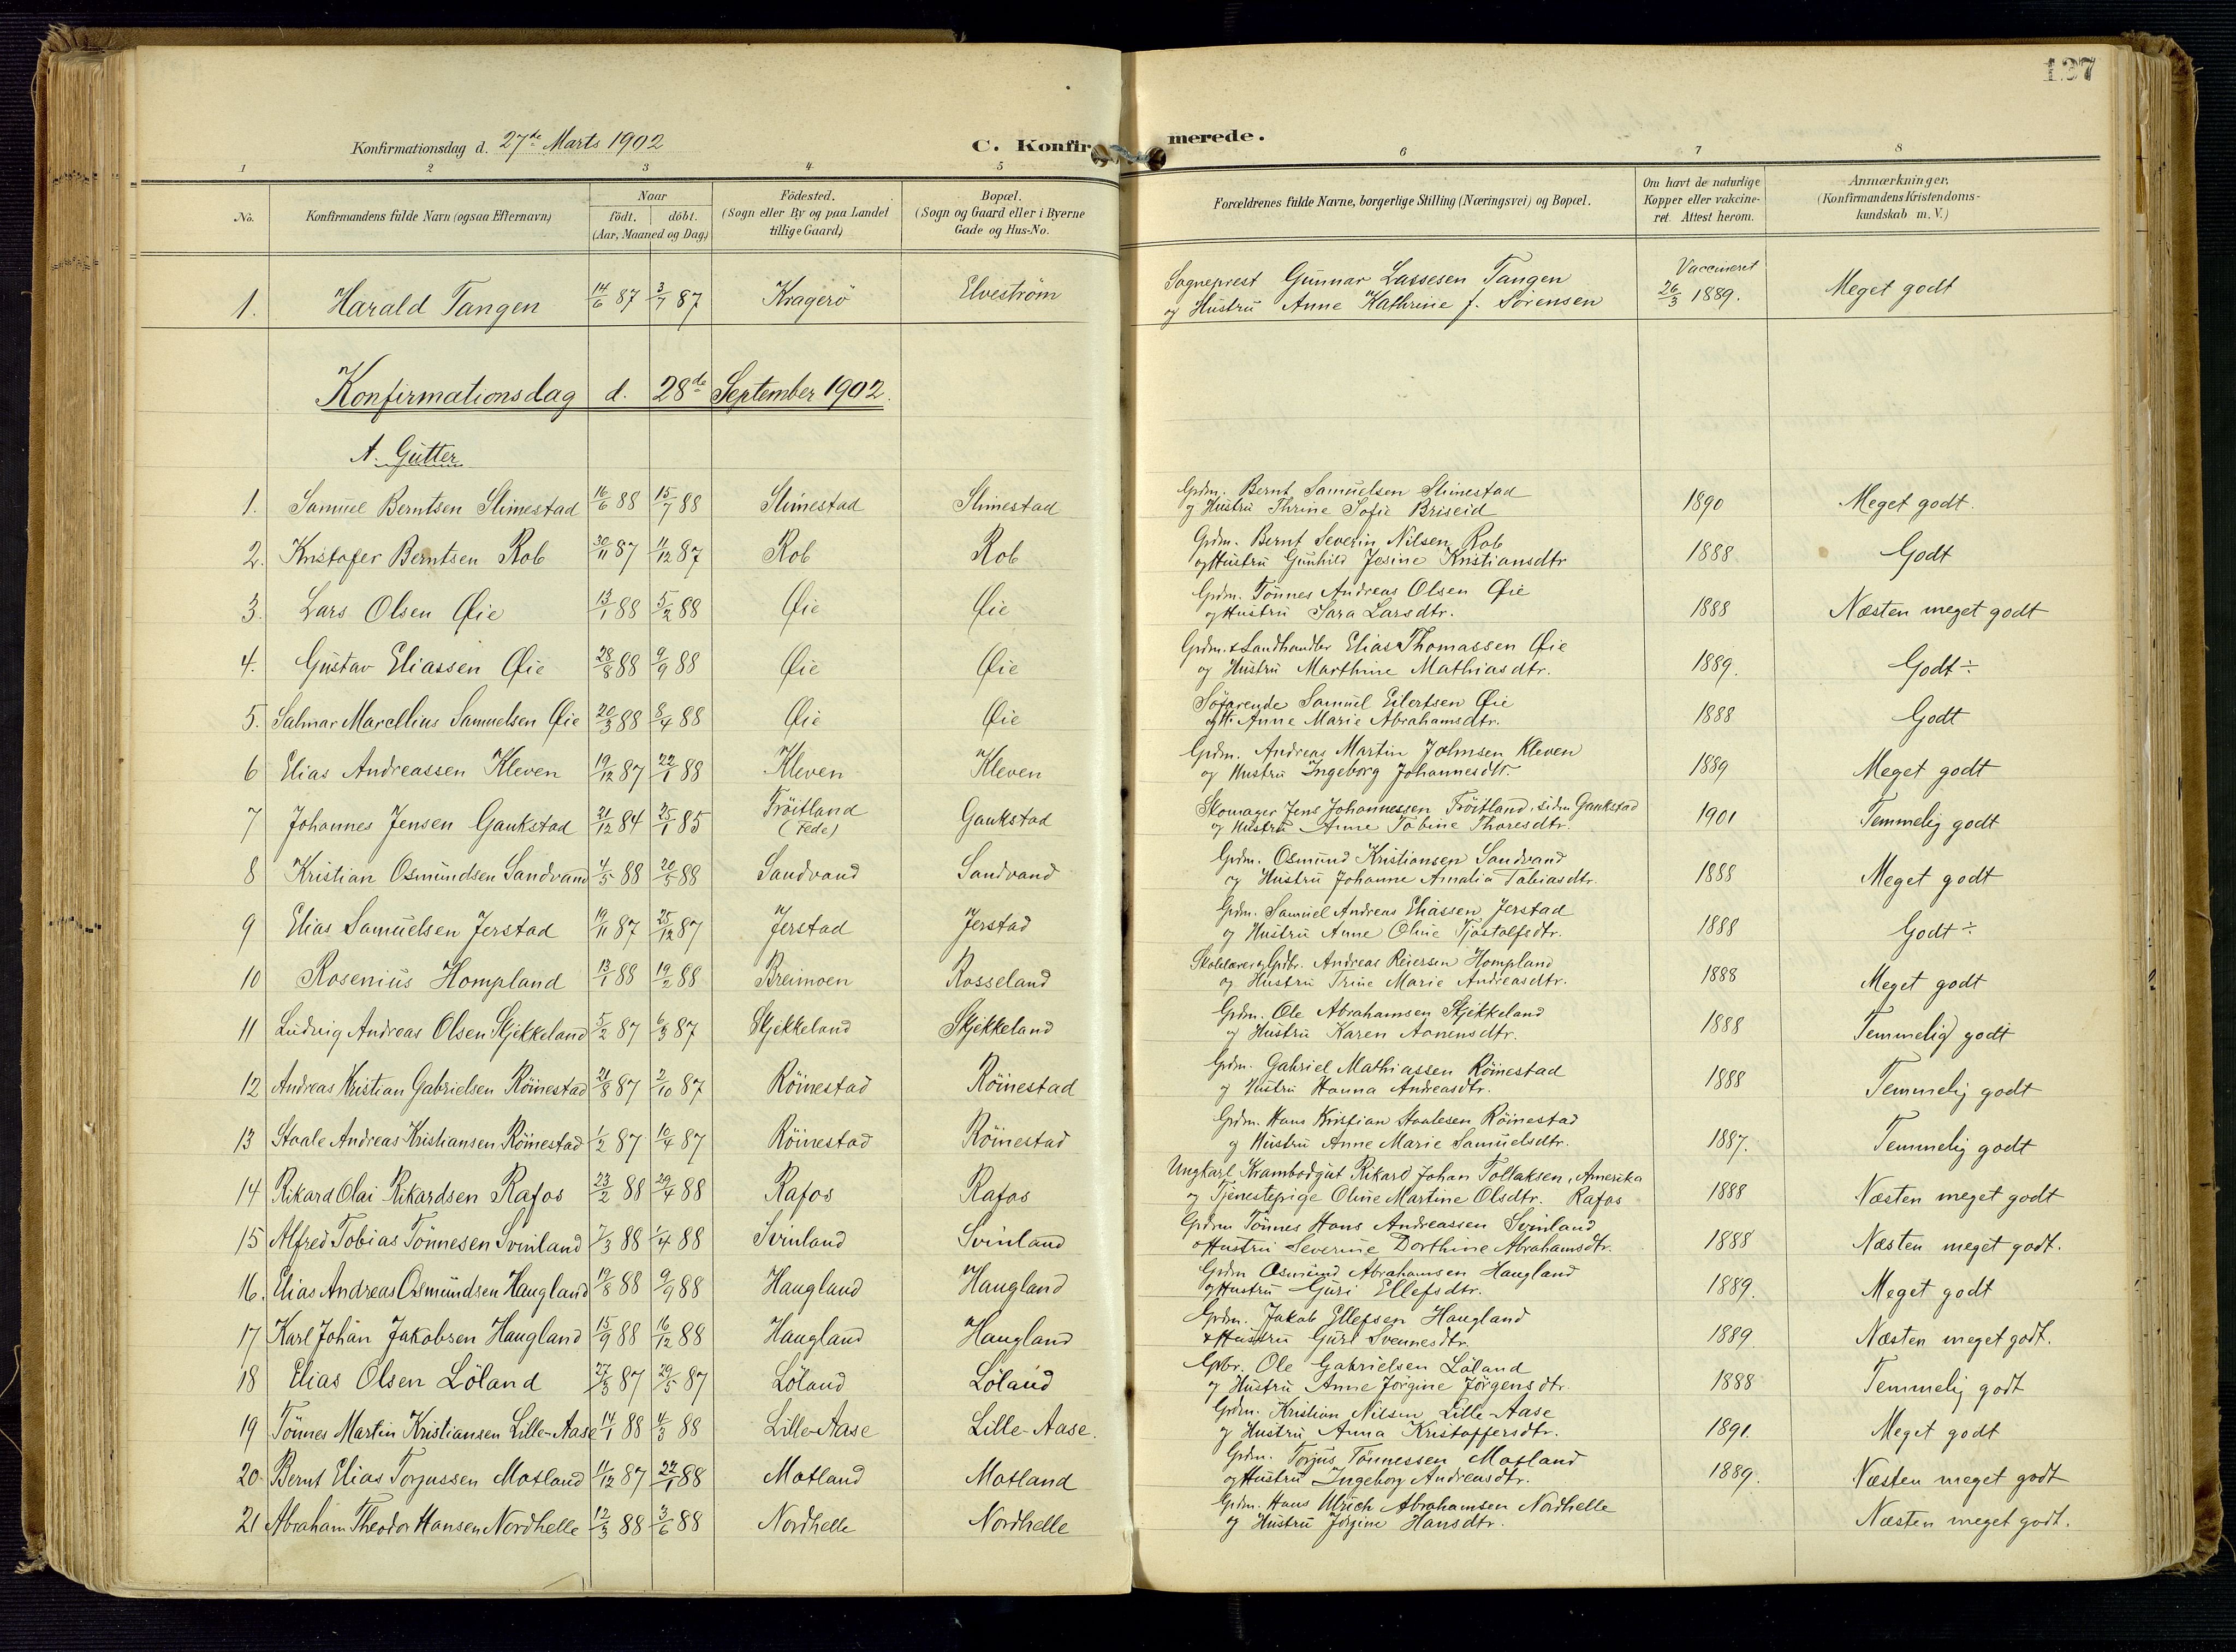 137
Konfirmationsdag d. 27de Marts 1902
C. Konfirmerede.
1 2 3 4 5 6 7 8
No.
Konfirmandens fulde Navn (ogsaa Efternavn)
Naar
födt. döbt.
(Aar, Maaned og Dag)
Födested.
(Sogn eller By og paa Landet
tillige Gaard)
Bopæl.
(Sogn og Gaard eller i Byerne
Gade og Hus-No.
Forældrenes fulde Navne, borgerlige Stilling (Næringsvei) og Bopæl.
Om havt de naturlige
Kopper eller vakcine-
ret. Attest herom.
Anmærkninger.
(Konfirmandens Kristendoms-
kundskab m. V.)
1. Harald Tangen 14/6 87 3/7 87 Kragerö Elveström
Sogneprest Gunnar Lassesen Tangen
og Hustru Anne Kathrine f. Sörensen
Vaccineret
26/3 1889. Meget godt
Konfirmationsdag d. 28de September 1902.
A. Gutter
1. Samuel Berntsen Slimestad 16/6 88 15/7 88 Slimestad Slimestad
Grdm. Bernt Samuelsen Slimestad
og Hustru Thrine Sofie Briseid
1890 Meget godt.
2. Kristofer Berntsen Rob 30/11 87 11/12 87 Rob Rob
Grdm. Bernt Severin Nilsen Rob
og Hustru Gunhild Josine Kristiansdtr
1888 Godt
3. Lars Olsen Øie 13/1 88 5/2 88 Øie Øie
Grdm. Tönnes Andreas Olsen Øie
og Hustru Sara Larsdtr.
1888 Næsten meget godt
4. Gustav Eliassen Øie 28/8 88 9/9 88 Øie Øie
Grdm. & Landhandler Elias Thomassen Øie
og Hustru Marthine Mathiasdtr.
1889. Godt ÷
5. Salmar Marcellius Samuelsen Øie 20/3 88 8/4 88 Øie Øie
Söfarende Samuel Eilertsen Øie
og H. Anne Marie Abrahamsdtr.
1888 Godt
6 Elias Andreassen Kleven 19/12 87 22/1 88 Kleven Kleven
Grdm. Andreas Martin Johnsen Kleven
og Hustru Ingeborg Johannesdtr.
1889 Meget godt
7 Johannes Jensen Gaukstad 21/12 84 25/1 85 Fröitland (Fede) Gaukstad
Skomager Jens Johannessen Fröitland, siden Gaukstad
og Hustru Anne Tobine Thoresdtr.
1901 Temmelig godt
8 Kristian Osmundsen Sandvand 4/5 88 20/5 88 Sandvand Sandvand
Grdm. Osmund Kristiansen Sandvand
og Hustru Johanne Amalia Tobiasdtr.
1888 Meget godt
9 Elias Samuelsen Jerstad 19/11 87 25/12 87 Jerstad Jerstad
Grdm. Samuel Andreas Eliassen Jerstad
og Hustru Anne Oline Tjöstolfsdtr.
1888 Godt ÷
10 Rosenius Hompland 13/1 88 19/2 88 Breimoen Rosseland
Skolelærer og Grdbr. Andreas Reiersen Hompland
og Hustru Trine Marie Andreasdtr.
1888 Meget godt
11 Ludvig Andreas Olsen Skjekkeland 5/2 87 6/3 87 Skjekkeland Skjekkeland
Grdm. Ole Abrahamsen Skjekkeland
og Hustru Karen Aanensdtr.
1888 Temmelig godt
12 Andreas Kristian Gabrielsen Röinestad 21/8 87 2/10 87 Röinestad Röinestad
Grdm. Gabriel Mathiassen Röinestad
og Hustru Hanna Andreasdtr.
1888 Temmelig godt
13 Staale Andreas Kristiansen Röinestad 1/2 87 10/4 87 Röinestad Röinestad
Grdm. Hans Kristian Staalesen Röinestad
og Hustru Anne Marie Samuelsdtr.
1887. Temmelig godt
14 Rikard Olai Rikardsen Rafos 23/2 88 29/4 88 Rafos Rafos
Ungkarl Krambodgut Rikard Johan Tollaksen, Amerika
og Tjenestepige Oline Martine Olsdtr. Rafos
1888 Næsten meget godt
15 Alfred Tobias Tönnesen Svinland 7/3 88 1/4 88 Svinland Svinland
Grdm Tönnes Hans Andreassen Svinland
o Hustru Severine Dorthine Abrahamsdtr.
1888 Næsten meget godt.
16. Elias Andreas Osmundsen Haugland 19/8 88 9/9 88 Haugland Haugland
Grdm Osmund Abrahamsen Haugland
og Hustru Guri Ellefsdtr.
1889. Meget godt
17 Karl Johan Jakobsen Haugland 15/9 88 16/12 88 Haugland Haugland
Grdm. Jakob Ellefsen Haugland
& Hustru Guri Svennesdtr.
1889. Næsten meget godt.
18 Elias Olsen Löland 27/3 87 29/5 87 Löland Löland
Grbr. Ole Gabrielsen Löland
og Hustru Anne Jörgine Jörgensdtr.
1888 Temmelig godt
19 Tönnes Martin Kristiansen Lille-Aase 14/1 88 4/3 88 Lille-Aase Lille-Aase.
Grdm. Kristian Nilsen Lille-Aase
og Hustru Anna Kristoffersdtr.
1891. Meget godt
20. Bernt Elias Torjussen Motland 11/12 87 22/1 88 Motland Motland
Grdm. Torjus Tönnessen Motland
og Hustru Ingeborg Andreasdtr.
1889. Næsten meget godt
21 Abraham Theodor Hansen Nordhelle 12/3 88 3/6 88 Nordhelle Nordhelle
Grdm. Hans Ulrich Abrahamsen Nordhelle
og Hustru Jörgine Hansdtr.
Næsten meget godt.